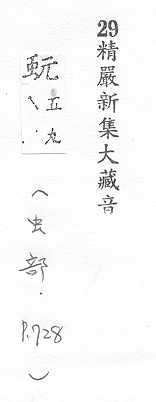 29精嚴新集大藏音
蚖 五丸
(虫部.P.728)